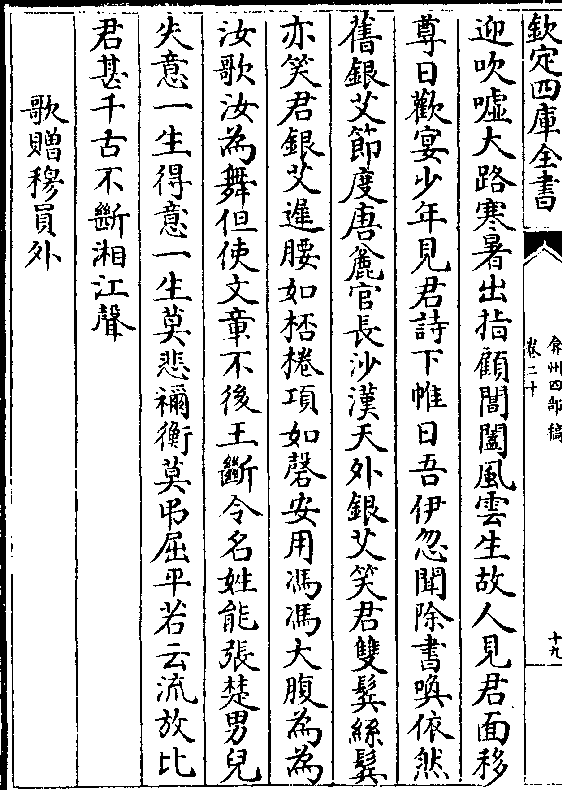 欽定四庫全書
弇州四部稿
卷二十
十九
迎吹噓大路寒暑出指顧閶闔風雲生故人見君面移
尊日歡宴少年見君詩下帷日吾伊忽聞除書喚依然
舊銀艾節度唐麄官長沙漢天外銀艾笑君雙鬂絲鬂
亦笑君銀艾遲腰如桮捲項如磬安用馮馮大腹為為
汝歌汝為舞但使文章不後王斷令名姓能張楚男兒
失意一生得意一生莫悲禰衡莫弔屈平若云流放比
君甚千古不斷湘江聲
歌贈穆員外